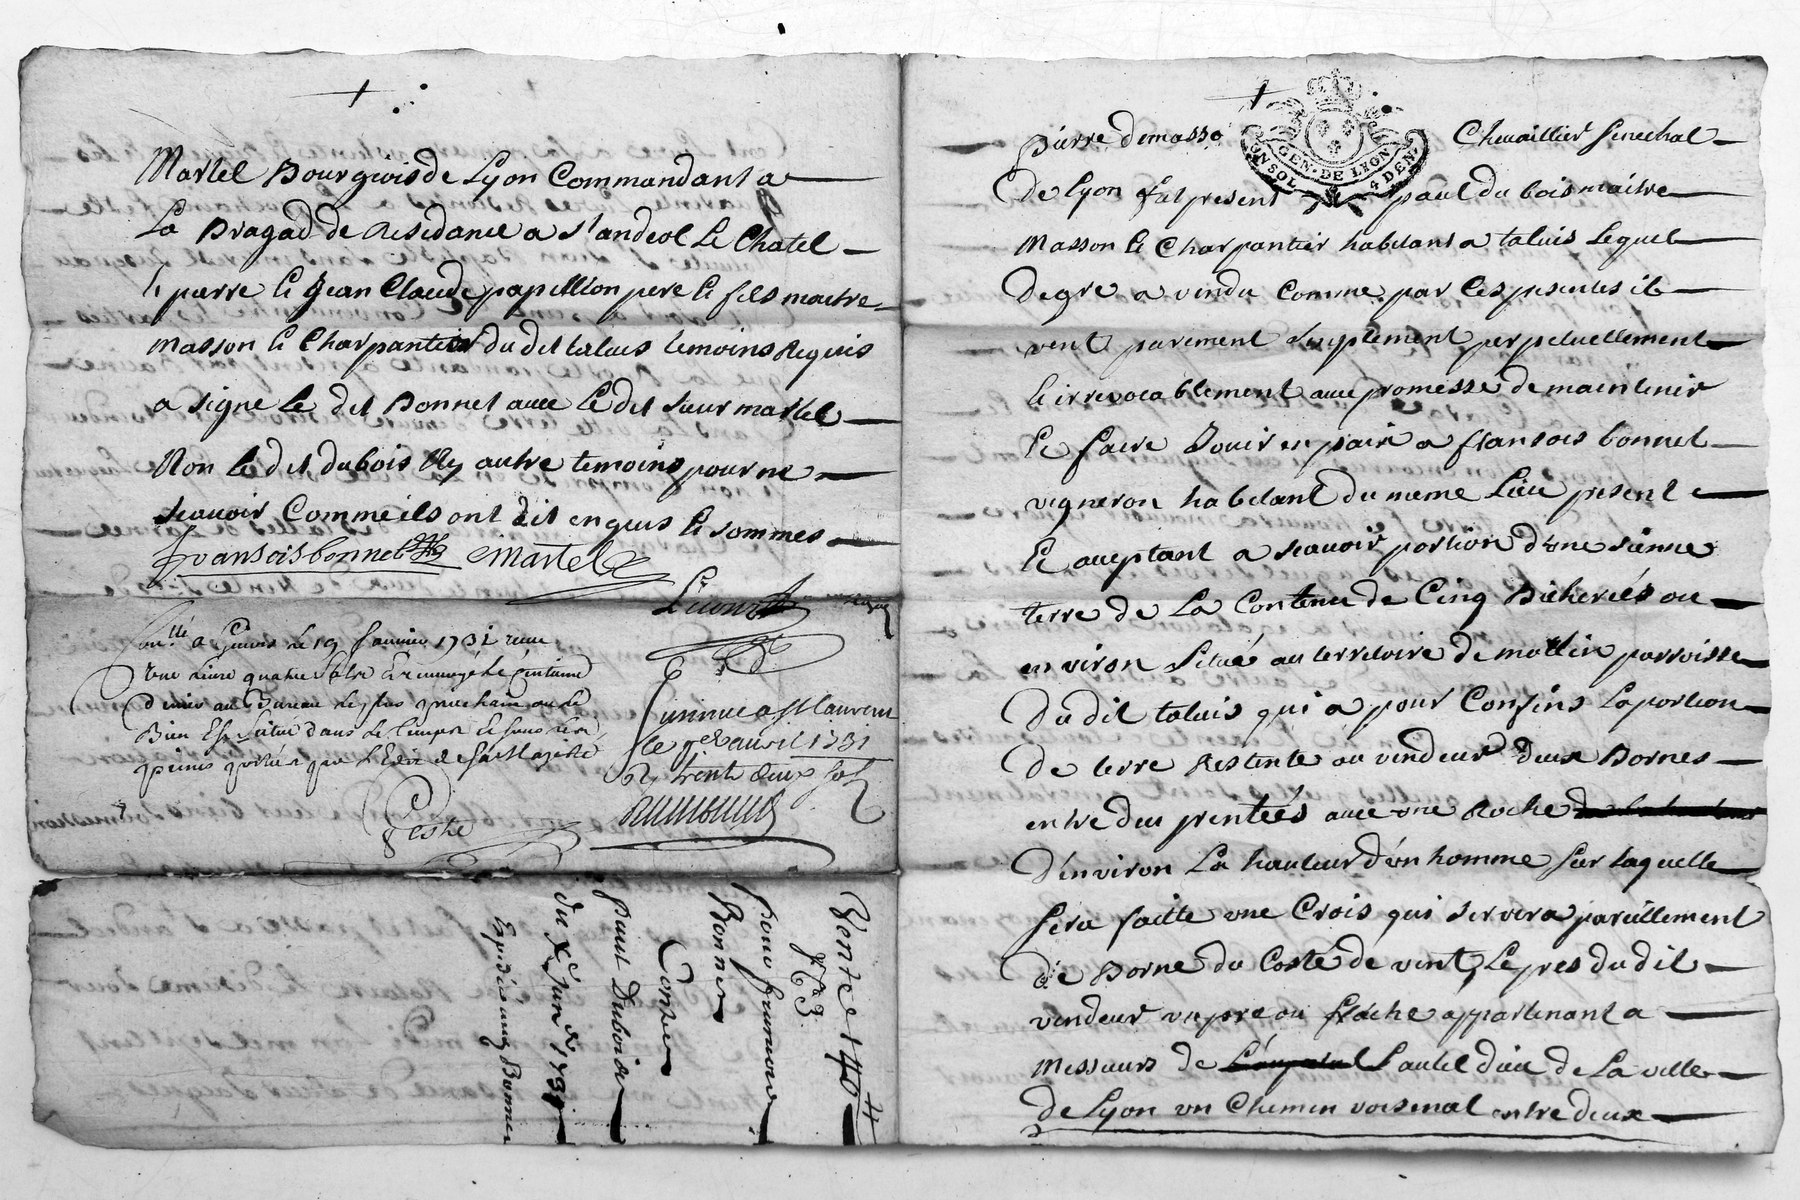 Martel Bourgiois de Lyon Commandant a
La Bragad de Residance a St andeol Le Chatel
pierre & Jean Claude papillion pere & fils maitre
masson & Charpantier du dit taluis temoins Requis
a signe le dit Bonnet avec le dit sieur martel
Non le dit dubois Ny autre temoins pour ne
scavoir Comme ils ont dit enquis & sommes
fransois bonnet Martel
a Givors le 19 Janvier 1731 receu
une livre quatre sols
denier au Bureau le plus prochain ou le
Bien Est situé dans le temps & sous les
peines portées par l'Edit de sa Majesté
Teste
St Laurent
le avril 1731
trente deux sols
Vente 140 ₶
pour francois
Bonnet
Contre
paul Dubois
du Xe Janer 1731
Expedié aud Bonnet
Pierre demasso Chevaillier Senechal
GEN. DE LYON
4 DEN.
De Lyon fut present paul du bois maitre
Masson & Charpantier habitant a taluis Lequel
De gre a vendu Comme par Les presentes il
vent purement simplement perpetuellement
& irrevocablement avec promesse De maintenir
& faire Jouir en paix a fransois bonnet
vigneron habitant du meme Lieu present
& aceptant a scavoir portion d'une sienne
terre de La Contenue de Cinq Bicherées ou
environ Situé au territoire de mollin parroisse
Du dit taluis qui a pour Confins La portion
De terre Restente au vendeur deux Bornes
entre deux plentées avec une Roche
D'environ La hauteur d'un homme sur laquelle
sera faitte une Crois qui servira pareillement
de Borne du Costé de vent, Le pres du dit
vendeur un pre ou appartenant a
Messieurs de L'autel dieu de La ville
De Lyon un Chemin voisenal entre deux